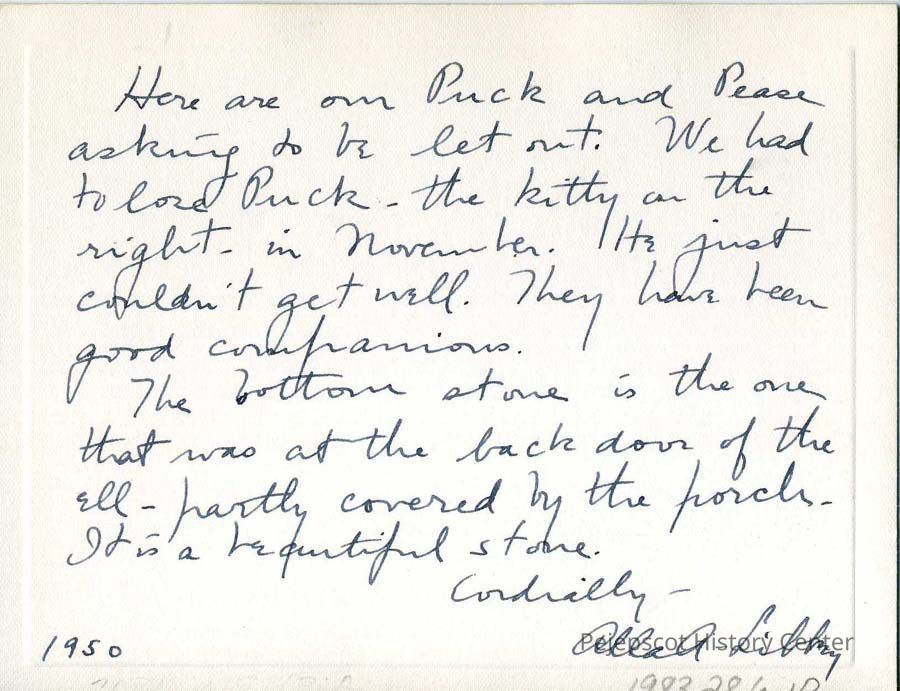 Here are our Puck and Pease
asking to be let out. We had
to lose Puck - the kitty on the
right - in November. He just
couldn't get well. They have been
good companions.
The bottom stone is the one
that was at the back door of the
ell - partly covered by the porch -
It is a beautiful stone.
Cordially -
1950 Ella A. Libby
Pejepscot History Center